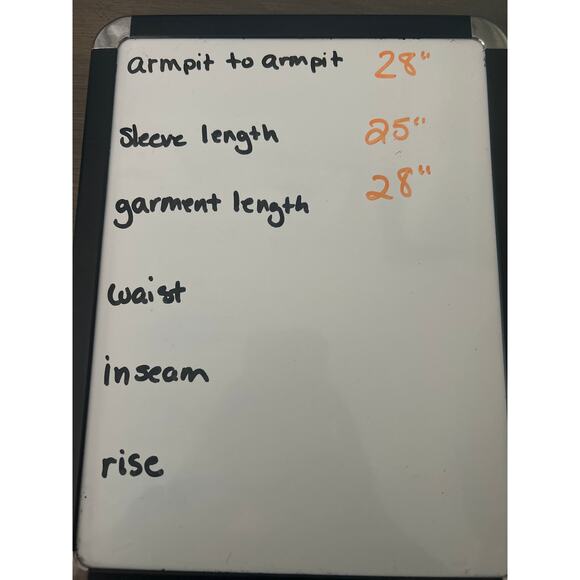 armpit to armpit 28"
sleeve length 25"
garment length 28"
waist
inseam
rise